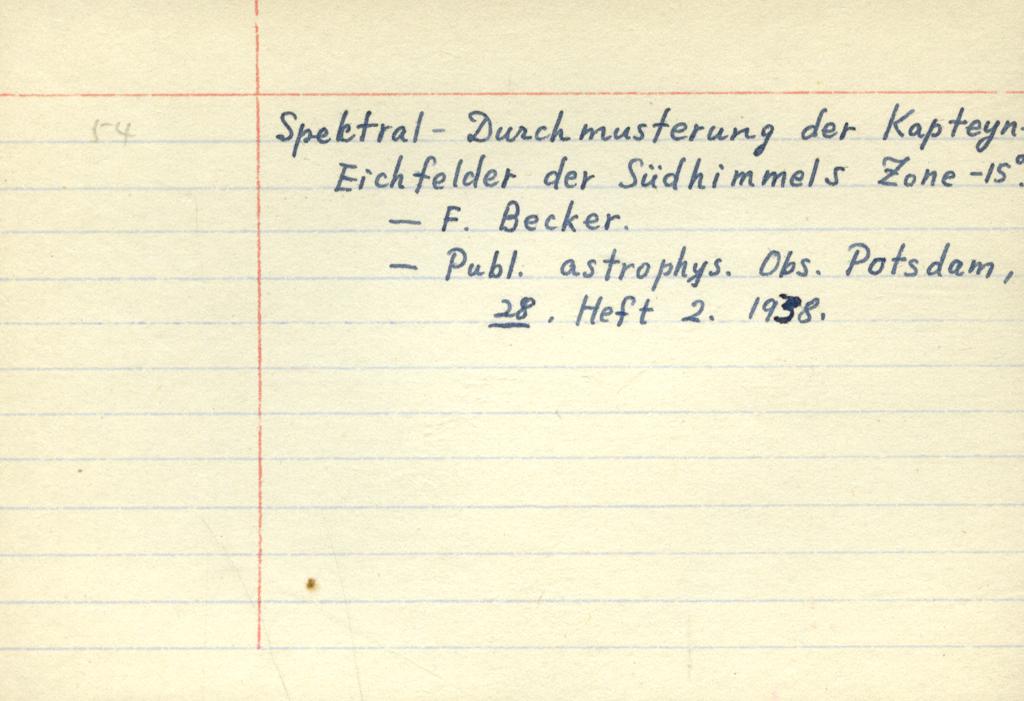 54
Spektral- Durchmusterung der Kapteyn-
Eichfelder der Südhimmels Zone -15°.
— F. Becker.
— Publ. astrophys. Obs. Potsdam,
28. Heft 2. 1938.